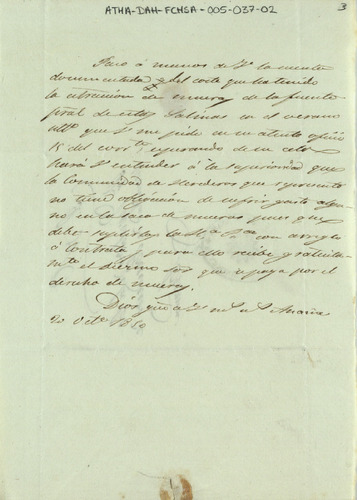 ATHA-DAH-FCMSA-005-037-02
3
Paso á manos de V. la cuenta
documentada del coste que ha tenido
la estraccion de muera de la fuente
pral de estas Salinas en el verano
ultº que V. me pide en su atento oficio
15 del corrte esperando de su celo
hará V. entender á la superioridad que
la Comunidad de Herederos que represento
no tiene obligacion de sufrir gasto algu-
no en la saca de mueras pues que
debe suplirlos la Hda con arreglo
á contrata, para ello recibe gratuita-
mte el diezmo que apaga por el
derecho de muera.
Dios gue á V. ms as Añana
20 Octe 1850